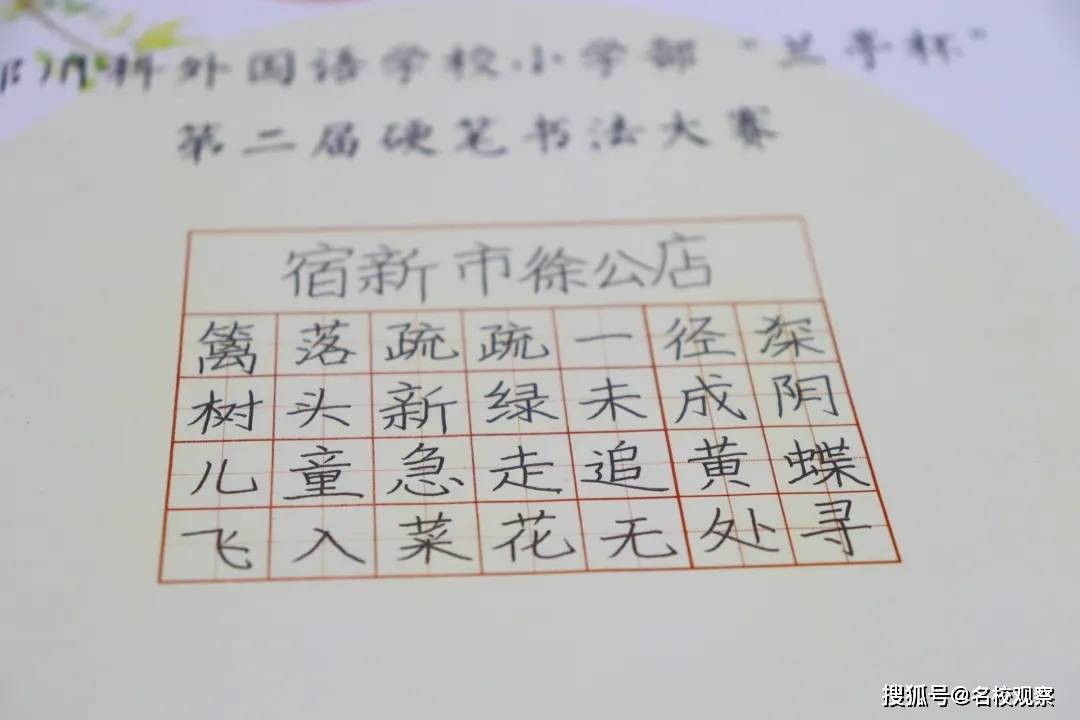 科外国语学校小学部“兰亭杯”
第二届硬笔书法大赛
宿新市徐公店
篱落疏疏一径深
树头新绿未成阴
儿童急走追黄蝶
飞入菜花无处寻
搜狐号@名校观察